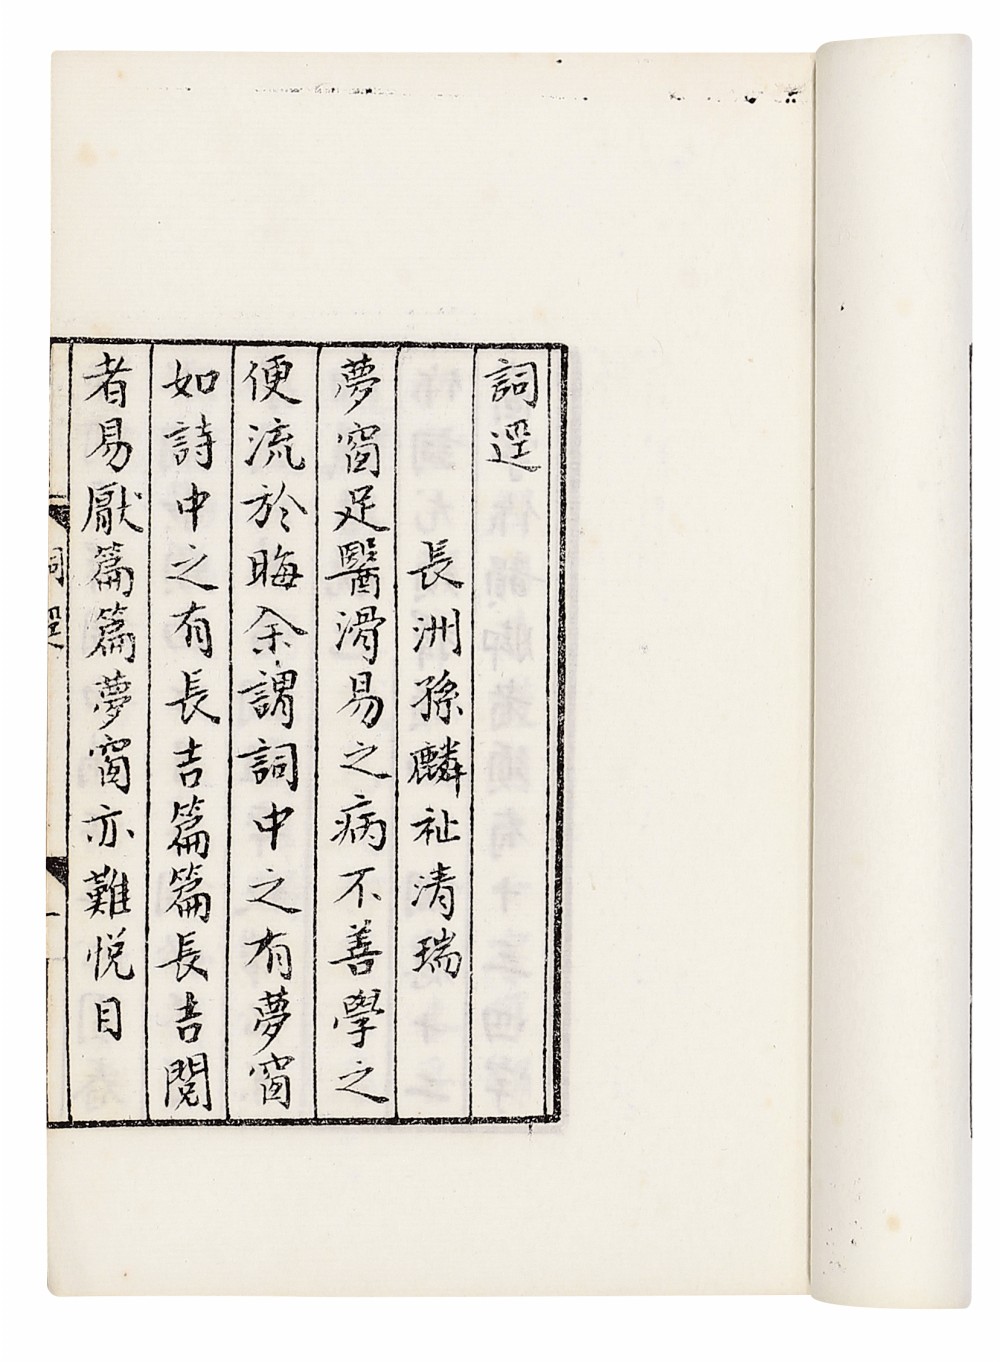 詞逕
長洲孫麟趾清瑞
夢窗足醫滑易之病不善學之
便流於晦余謂詞中之有夢窗
如詩中之有長吉篇篇長吉閱
者易厭篇篇夢窗亦難悅目
詞逕
一